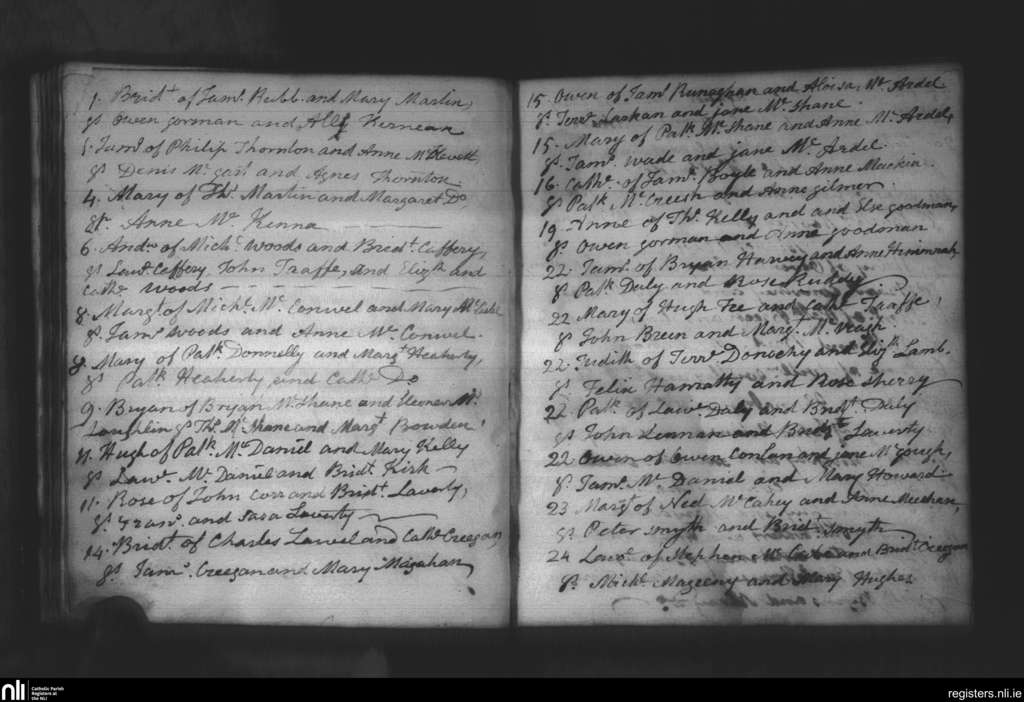 1. Bridt. of Jams. Rubb and Mary Martin,
gs Owen gorman and Kernean
5. Jams. of Philip Thornton and Anne McKevett
gs Denis Mc. gan and Agnes Thornton
4. Mary of Ths. Martin and Margaret Do
Sr. Anne Mc. Kenna
6. Andw. of Michl. Woods and Bridt. Caffery,
gs Lawr. Caffery, John Traffe, and Elizth and
Cathe. Woods
8. Margt. of Michl. Mc. Conwel and Mary McCabe
gs Jams. Woods and Anne Mc. Conwel.
8. Mary of Patk. Donnelly and Margt Heaherty,
gs Patk. Heaherty, and Cathe. Do
9. Bryan of Bryan Mc. Shane and Eleonor Mc.
Laughlin gs Ths. Mc. Shane and Margt Bowden
11. Hugh of Patk. Mc. Daniel and Mary Kelly
gs Lawr. Mc. Daniel and Bridt. Kirk
11. Rose of John Corr and Bridt. Laverty,
gs Frans. and Sara Laverty
14. Bridt. of Charles Lawel and Cathe Creegan,
gs Jams. Creegan and Mary Magahan
15. Owen of Jams Runaghan and Aloisa Mc Ardel
gs Terre. Larkan and jane Mc. Shane
15. Mary of Patk. Mc. Shane and Anne Mc. Ardel,
gs. Jams. Wade and jane Mc. Ardel.
16. Cathe. of Jams. Boyle and Anne Mackin
gs Patk. Mc. Creesh and Anne gilmer.
19. Anne of Ths. Kelly and and Else goodman,
gs Owen gorman and Anne goodman
22. Jams. of Bryan Harvey and Anne
gs Patk. Daly and Rose Ruddy
22 Mary of Hugh Fee and Cathe. Traffe
gs John Breen and Margt. Mc. Veagh
22. Judith of Terre. Donochy and Lamb.
gs. Felix Hanratty and Rose Sherry
22. Patk. of Lawr. Daly and Bridt. Daly
gs John Lennan and Bridgt Laverty
22. Owen of Owen Conlan and jane Mc. gough,
gs. Jams. Mc. Daniel and Mary Howard
23 Margt. of Ned Mc. Cahey and Anne Meechan,
gs Peter Smyth and Bridt. Smyth
24 Lawr. of Stephen Mc. Cabe and Bridt. Creegan
gs. Michl. Mageeny and Mary Hughes
nli
Catholic Parish
Registers at
the NLI
registers.nli.ie